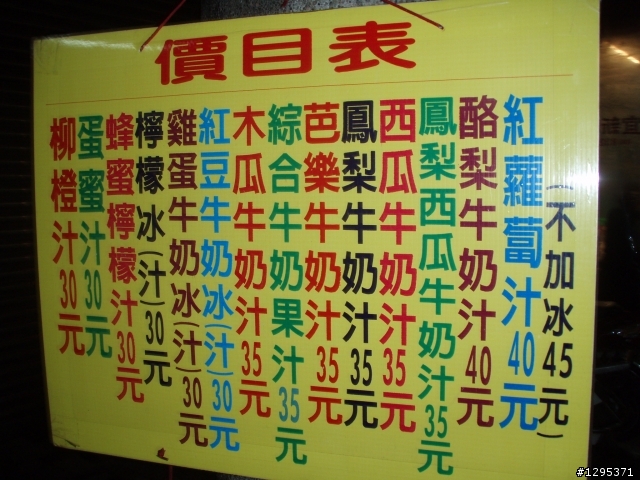 價目表
紅蘿蔔汁40元
(不加冰45元)
酪梨牛奶汁40元
鳳梨西瓜牛奶汁35元
西瓜牛奶汁35元
鳳梨牛奶汁35元
芭樂牛奶汁35元
綜合牛奶果汁35元
木瓜牛奶汁35元
紅豆牛奶冰(汁)30元
雞蛋牛奶冰(汁)30元
檸檬冰(汁)30元
蜂蜜檸檬汁30元
蛋蜜汁30元
柳橙汁30元
#1295371